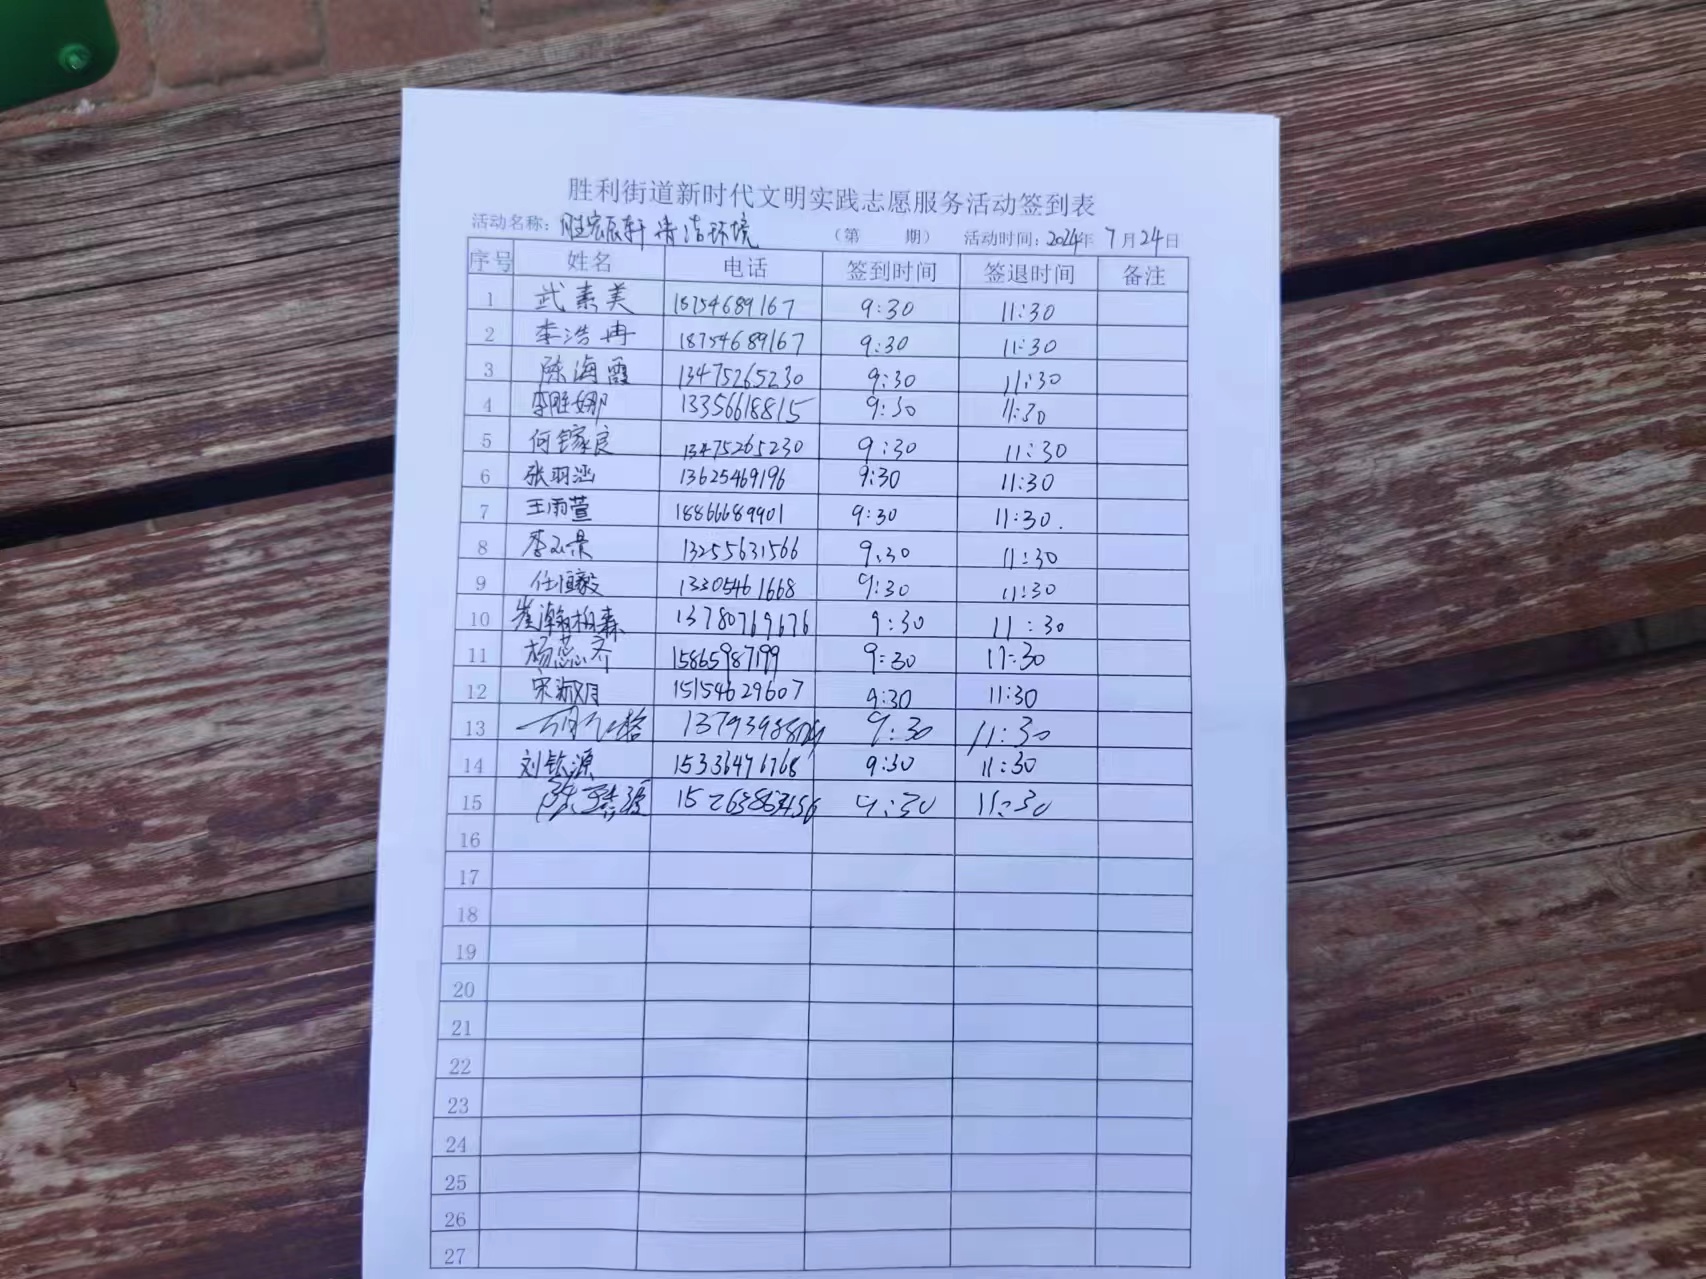 胜利街道新时代文明实践志愿服务活动签到表
活动名称: 胜宏辰轩 清洁环境 （第 期） 活动时间: 2024年 7月24日
序号 姓名 电话 签到时间 签退时间 备注
1 武素美 18754689167 9:30 11:30
2 李浩冉 18754689167 9:30 11:30
3 陈海霞 13475265230 9:30 11:30
4 李胜娜 13356618815 9:30 11:30
5 何锦良 13475265230 9:30 11:30
6 张羽涵 13625469196 9:30 11:30
7 王雨萱 18866689901 9:30 11:30.
8 13255631566 9:30 11:30
9 任恒毅 13305461668 9:30 11:30
10 崔瀚柏森 13780769676 9:30 11:30
11 杨蕊齐 15865987199 9:30 11:30
12 宋淑月 15154629607 9:30 11:30
13 9:30 11:30
14 刘钦源 15336476768 9:30 11:30
15 9:30 11:30
16
17
18
19
20
21
22
23
24
25
26
27